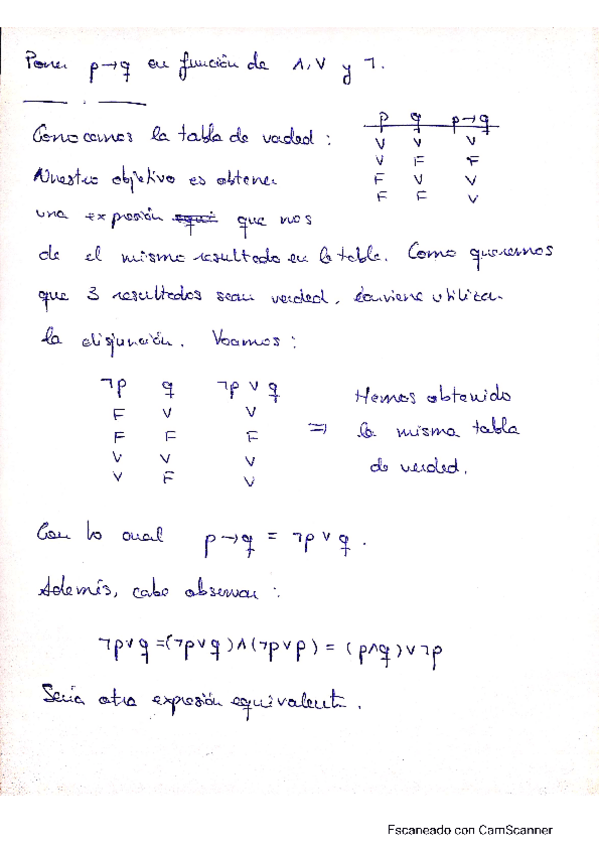 Poner p→q en función de ∧,∨ y ¬.
Conocemos la tabla de verdad :
p q p→q
V V V
V F F
F V V
F F V
Nuestro objetivo es obtener
una expresión que nos
de el mismo resultado en la tabla. Como queremos
que 3 resultados sean verdad, conviene utilizar
la disjunción. Veamos :
¬p q ¬p ∨ q
F V V
F F F
V V V
V F V
⇒ Hemos obtenido
la misma tabla
de verdad.
Con lo cual p→q = ¬p∨q .
Además, cabe observar :
¬p∨q =(¬p∨q)∧(¬p∨p) = (p∧q)∨¬p
Sería otra expresión equivalente.
Escaneado con CamScanner